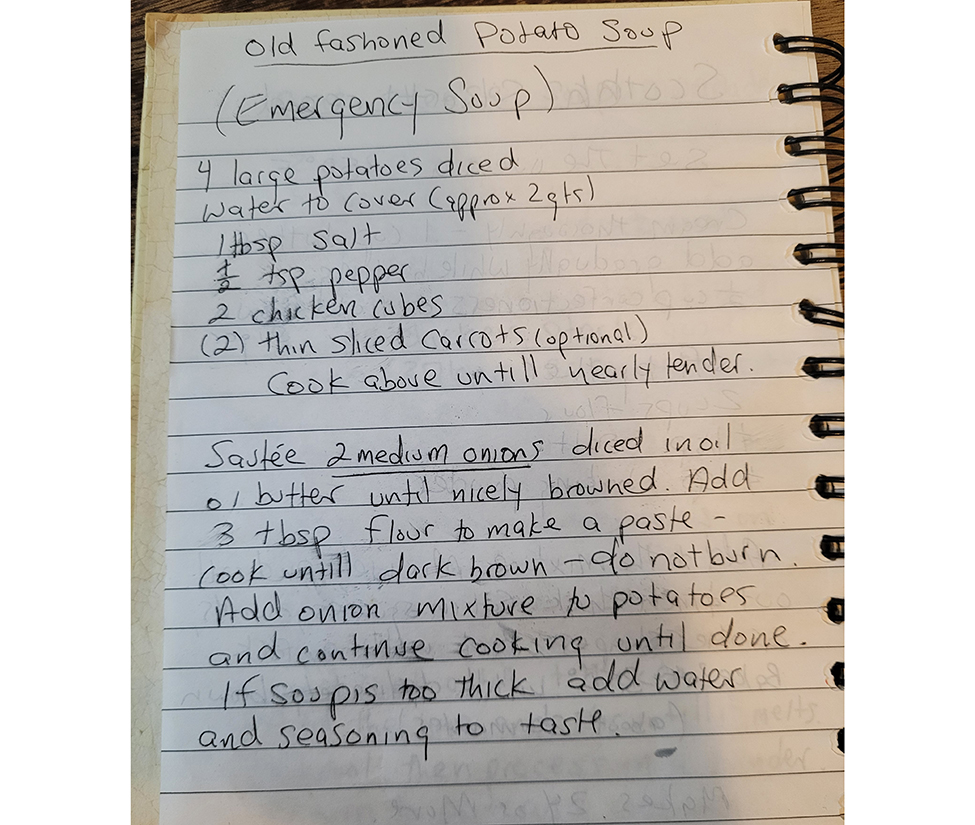 Old fashoned Potato Soup
(Emergency Soup)
4 large potatoes diced
water to cover (approx 2 qts)
1 tbsp salt
1/2 tsp pepper
2 chicken cubes
(2) thin sliced carrots (optional)
Cook above untill nearly tender.
Sautée 2 medium onions diced in oil
or butter until nicely browned. Add
3 tbsp flour to make a paste -
Cook untill dark brown - do not burn.
Add onion mixture to potatoes
and continue cooking until done.
If soup is too thick add water
and seasoning to taste.